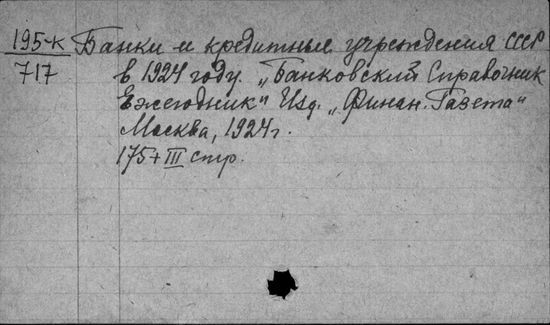 195-К Банки и кредитные учреждения СССР
717 в 1924 году. „Банковский Справочник
Ежегодник“ Изд. „Финан. Газета“
Москва, 1924 г.
175+III стр.